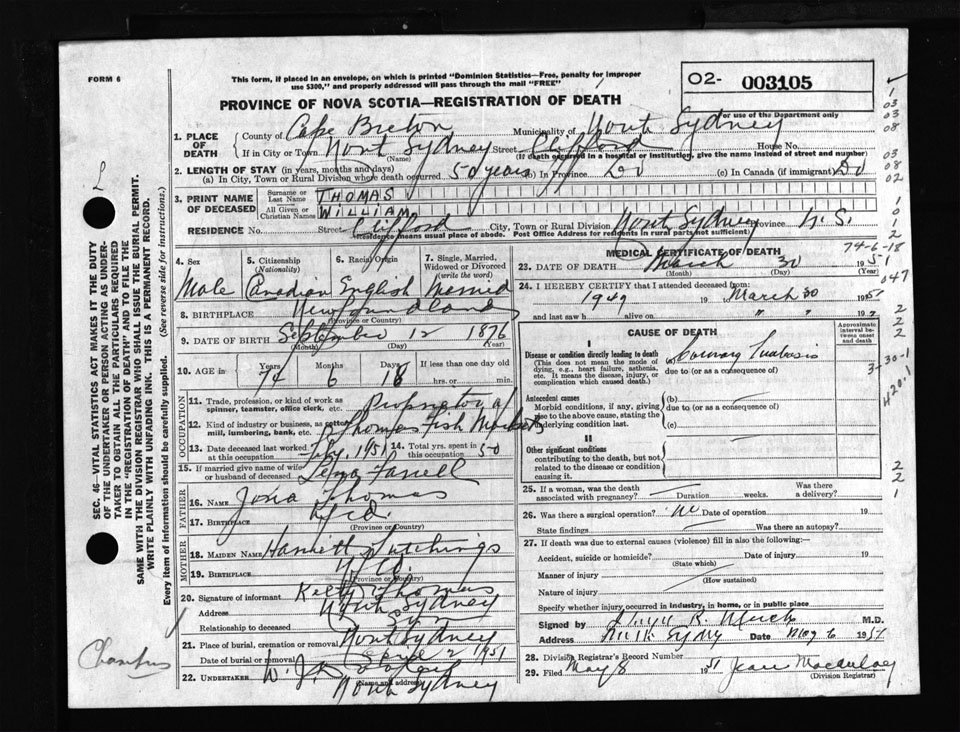 FORM 6
This form, if placed in an envelope, on which is printed "Dominion Statistics—Free, penalty for improper
use $300," and properly addressed will pass through the mail "FREE"
PROVINCE OF NOVA SCOTIA—REGISTRATION OF DEATH
02- 003105
For use of the Department only
1. PLACE OF DEATH
County of Cape Breton Municipality of North Sydney
If in City or Town North Sydney Street Clifford House No.
(Name) (If death occurred in a hospital or institution, give the name instead of street and number)
2. LENGTH OF STAY (in years, months and days)
(a) In City, Town or Rural Division where death occurred 50 years (b) In Province Do (c) In Canada (if immigrant) Do
3. PRINT NAME OF DECEASED
Surname or Last Name THOMAS
All Given or Christian Names WILLIAM
RESIDENCE No. Street Clifford City, Town or Rural Division North Sydney Province N.S.
(Residence means usual place of abode. Post Office Address for residents in rural parts not sufficient)
4. Sex Male
5. Citizenship (Nationality) Canadian
6. Racial Origin English
7. Single, Married, Widowed or Divorced (write the word) Married
8. BIRTHPLACE Newfoundland
(Province or Country)
9. DATE OF BIRTH September 12 1876
(Month) (Day)
10. AGE 74 Years 6 Months 18 Days If less than one day old
hrs. or min.
OCCUPATION
11. Trade, profession, or kind of work as spinner, teamster, office clerk, etc. Proprietor of
12. Kind of industry or business, as cotton mill, lumbering, bank, etc. Thomas Fish Markets
13. Date deceased last worked at this occupation 1951 14. Total yrs. spent in this occupation 50
15. If married give name of wife or husband of deceased Lena Farrell
FATHER
16. NAME Thomas
17. BIRTHPLACE Nfld.
(Province or Country)
MOTHER
18. MAIDEN NAME Harriett Hutchings
19. BIRTHPLACE Nfld.
(Province or Country)
20. Signature of informant Thomas
Address North Sydney
Relationship to deceased
21. Place of burial, cremation or removal North Sydney
Date of burial or removal April 2 1951
22. UNDERTAKER W. J.
(Name and address) North Sydney
MEDICAL CERTIFICATE OF DEATH
74-6-18
23. DATE OF DEATH March 30 1951
(Month) (Day) (Year)
24. I HEREBY CERTIFY that I attended deceased from:
1949 19 to March 30 1951
and last saw h alive on " " 19 "
CAUSE OF DEATH
Approximate interval between onset and death
I
Disease or condition directly leading to death
(This does not mean the mode of dying, e.g., heart failure, asthenia, etc. It means the disease, injury, or complication which caused death.)
(a) Coronary
due to (or as a consequence of)
Antecedent causes
Morbid conditions, if any, giving rise to the above cause, stating the underlying condition last.
(b)
due to (or as a consequence of)
(c)
II
Other significant conditions
contributing to the death, but not related to the disease or condition causing it.
25. If a woman, was the death associated with pregnancy? Duration weeks. Was there a delivery?
26. Was there a surgical operation? No Date of operation 19
State findings Was there an autopsy?
27. If death was due to external causes (violence) fill in also the following:—
Accident, suicide or homicide? Date of injury 19
(State which)
Manner of injury
(How sustained)
Nature of injury
Specify whether injury occurred in industry, in home, or in public place
Signed by M.D.
Address North Sydney Date May 6 1951
28. Division Registrar's Record Number
29. Filed May 8 1951 Jean Macaulay
(Division Registrar)
SEC. 46 VITAL STATISTICS ACT MAKES IT THE DUTY
OF THE UNDERTAKER OR PERSON ACTING AS UNDER-
TAKER TO OBTAIN ALL THE PARTICULARS REQUIRED
IN THE "REGISTRATION OF DEATH" AND TO FILE THE
SAME WITH THE DIVISION REGISTRAR WHO SHALL ISSUE THE BURIAL PERMIT.
WRITE PLAINLY WITH UNFADING INK. THIS IS A PERMANENT RECORD.
Every item of information should be carefully supplied. (See reverse side for instructions.)
1
03
03
08
03
08
02
1
0
1
2
047
2
2
2
30-1
420.1
2
2
1